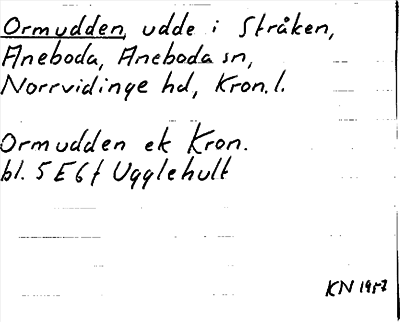 Ormudden, udde i Stråken,
Aneboda, Aneboda sn,
Norrvidinge hd, Kron.l.
Ormudden ek Kron.
bl. 5E6f Ugglehult
KN 1957